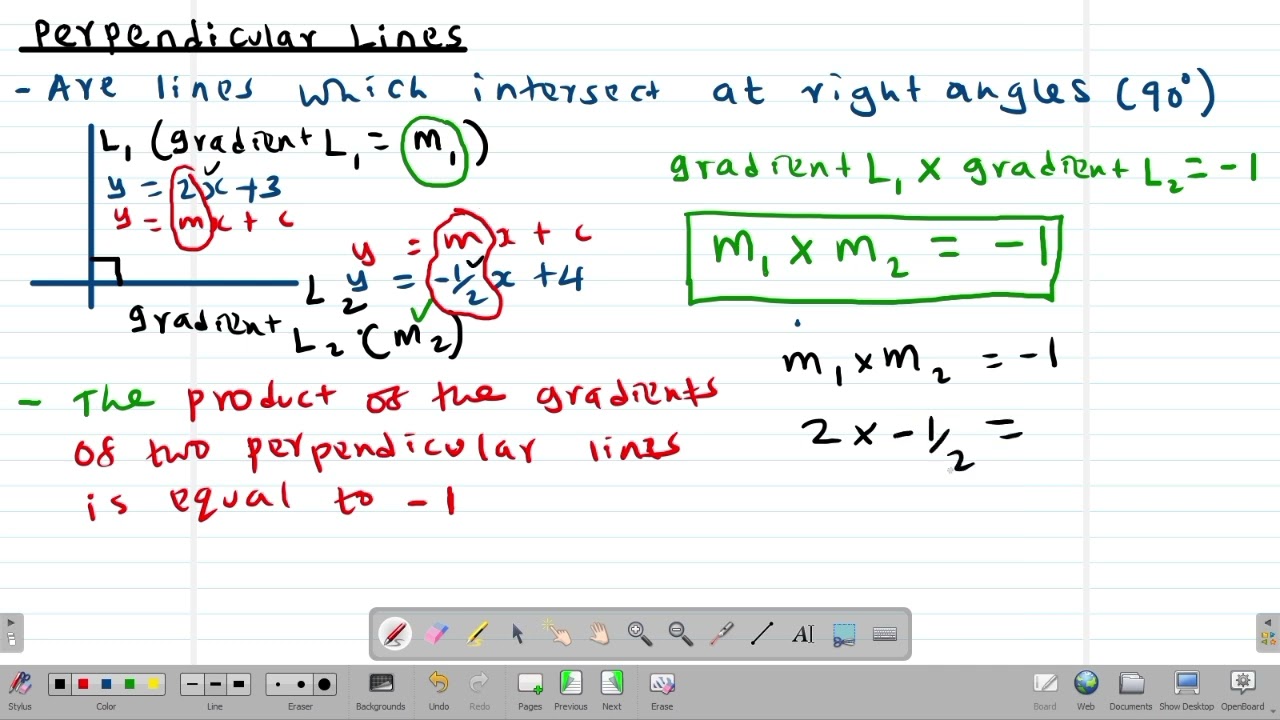 Perpendicular Lines
- Are lines which intersect at right angles (90°)
L₁ (gradient L₁ = m₁)
gradient L₁ x gradient L₂ = -1
y = 2x + 3
y = mx + c
y = mx + c
m₁ x m₂ = -1
L₂ y = -1/2 x + 4
gradient L₂ (m₂)
m₁ x m₂ = -1
- The product of the gradients
of two perpendicular lines
is equal to -1
2 x -1/2 =
Stylus
Color
Line
Eraser
Backgrounds
Undo
Redo
Pages
Previous
Next
Erase
Board
Web
Documents
Show Desktop
OpenBoard
AI